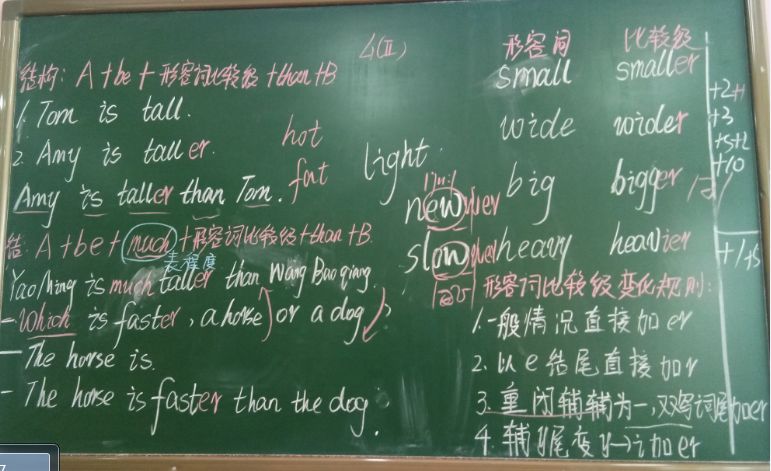 4(II)
结构: A+be+形容词比较级+than+B
1. Tom is tall.
2. Amy is taller.
Amy is taller than Tom.
hot
fat
light.
结: A+be+much+形容词比较级+than+B.
表程度
Yao Ming is much taller than Wang Baoqiang.
- Which is faster, a horse or a dog
- The horse is.
- The horse is faster than the dog.
newer
slower
形容词 比较级
small smaller
wide wider
big bigger
heavy heavier
形容词比较级变化规则:
1.一般情况直接加er
2.以e结尾直接加r
3.重闭辅辅为一,双写词尾加er
4.辅y尾变y→i加er
+3
+5+2
+10